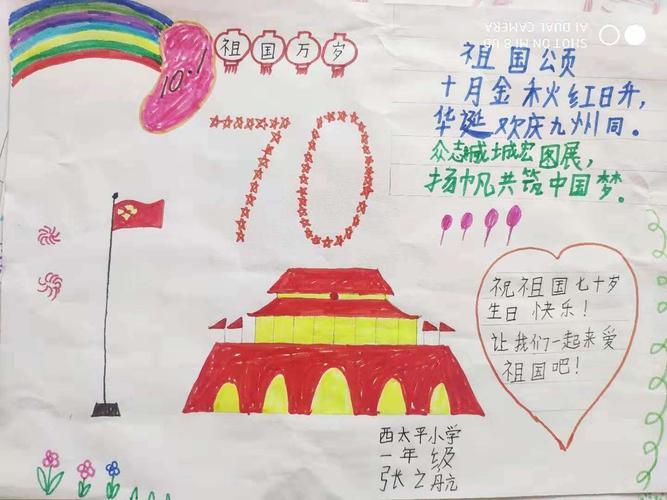 10.1
祖国万岁
70
祖国颂
十月金秋红日升,
华诞欢庆九州同。
众志成城宏图展,
扬帆共筑中国梦。
祝祖国七十岁
生日快乐!
让我们一起来爱
祖国吧!
西太平小学
一年级
张之航
SHOT ON MI 8 UD
AI DUAL CAMERA